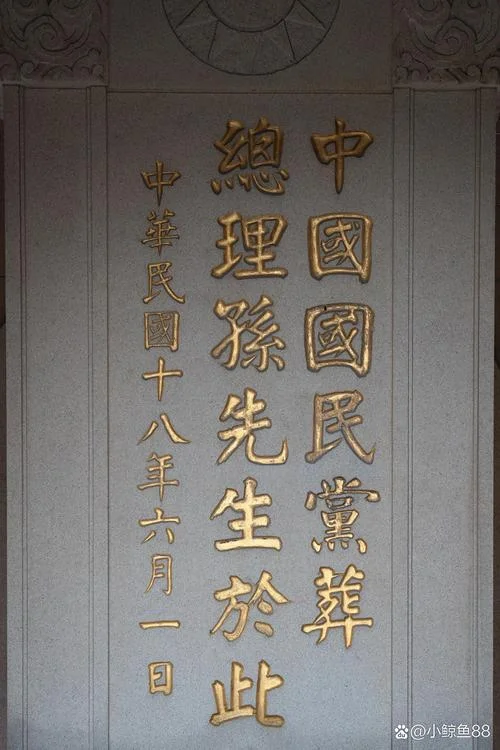 中國國民黨葬
總理孫先生於此
中華民國十八年六月一日
@小鲸鱼88